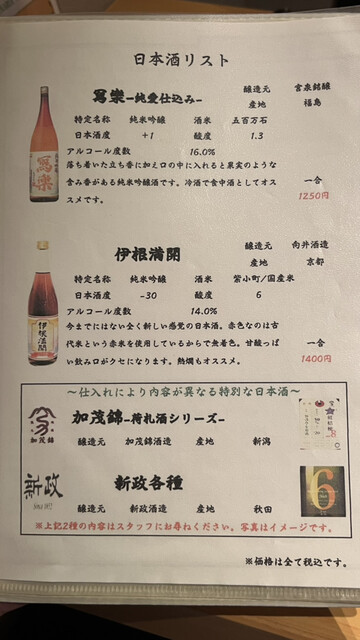 日本酒リスト
寫樂-純愛仕込み-
醸造元 宮泉銘醸
産地 福島
特定名称 純米吟醸 酒米 五百万石
日本酒度 +1 酸度 1.3
アルコール度数 16.0%
落ち着いた立ち香に加え口の中に入れると果実のような
含み香がある純米吟醸酒です。冷酒で食中酒としてオス
スメです。
一合
1250円
寫樂
伊根満開
醸造元 向井酒造
産地 京都
特定名称 純米吟醸 酒米 紫小町/国産米
日本酒度 -30 酸度 6
アルコール度数 14.0%
今までにはない全く新しい感覚の日本酒。赤色なのは古
代米という赤米を使用しているからで無着色。甘酸っぱ
い飲み口がクセになります。熱燗もオススメ。
一合
1400円
伊根満開
〜仕入れにより内容が異なる特別な日本酒〜
加茂錦-荷札酒シリーズ-
加茂錦
醸造元 加茂錦酒造 産地 新潟
新政
新政各種
醸造元 新政酒造 産地 秋田
6
※上記2種の内容はスタッフにお尋ねください。写真はイメージです。
※価格は全て税込です。